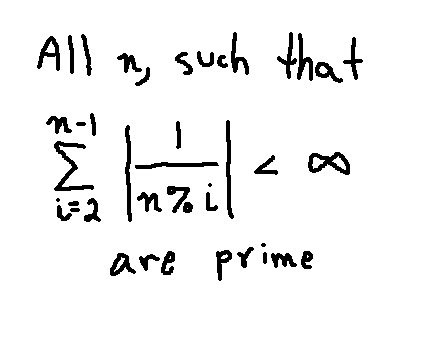 All n, such that
n-1
∑ |1/(n%i)| < ∞
i=2
are prime